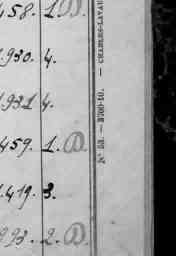 458. 1.
1.930. 4.
1.931. 4.
459. 1.
1.419. 3.
993. 2.
N° 53. — 3700-10. — CHARLES-LAVAU